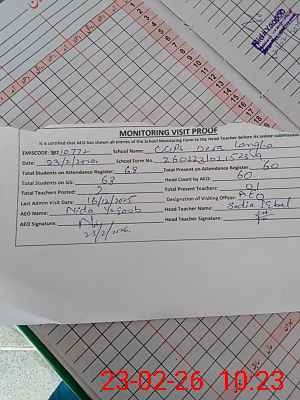 MONITORING VISIT PROOF
It is certified that AEO has shown all entries of the School Monitoring Form to the Head Teacher before its online submission
EMISCODE: School Name: GGPS Dera
Date: 23/2/2026 School Form No.
Total Students on Attendance Register: 68 Total Present on Attendance Register: 60
Total Students on SIS: 68 Head Count by AEO: 60
Total Teachers Posted: 2 Total Present Teachers: 01
Last Admin Visit Date: 16/12/2025 Designation of Visiting Officer: AEO
AEO Name: Nida Yaqoob Head Teacher Name: Sadia Iqbal
AEO Signature: Head Teacher Signature:
23/2/2026
23-02-26 10:23